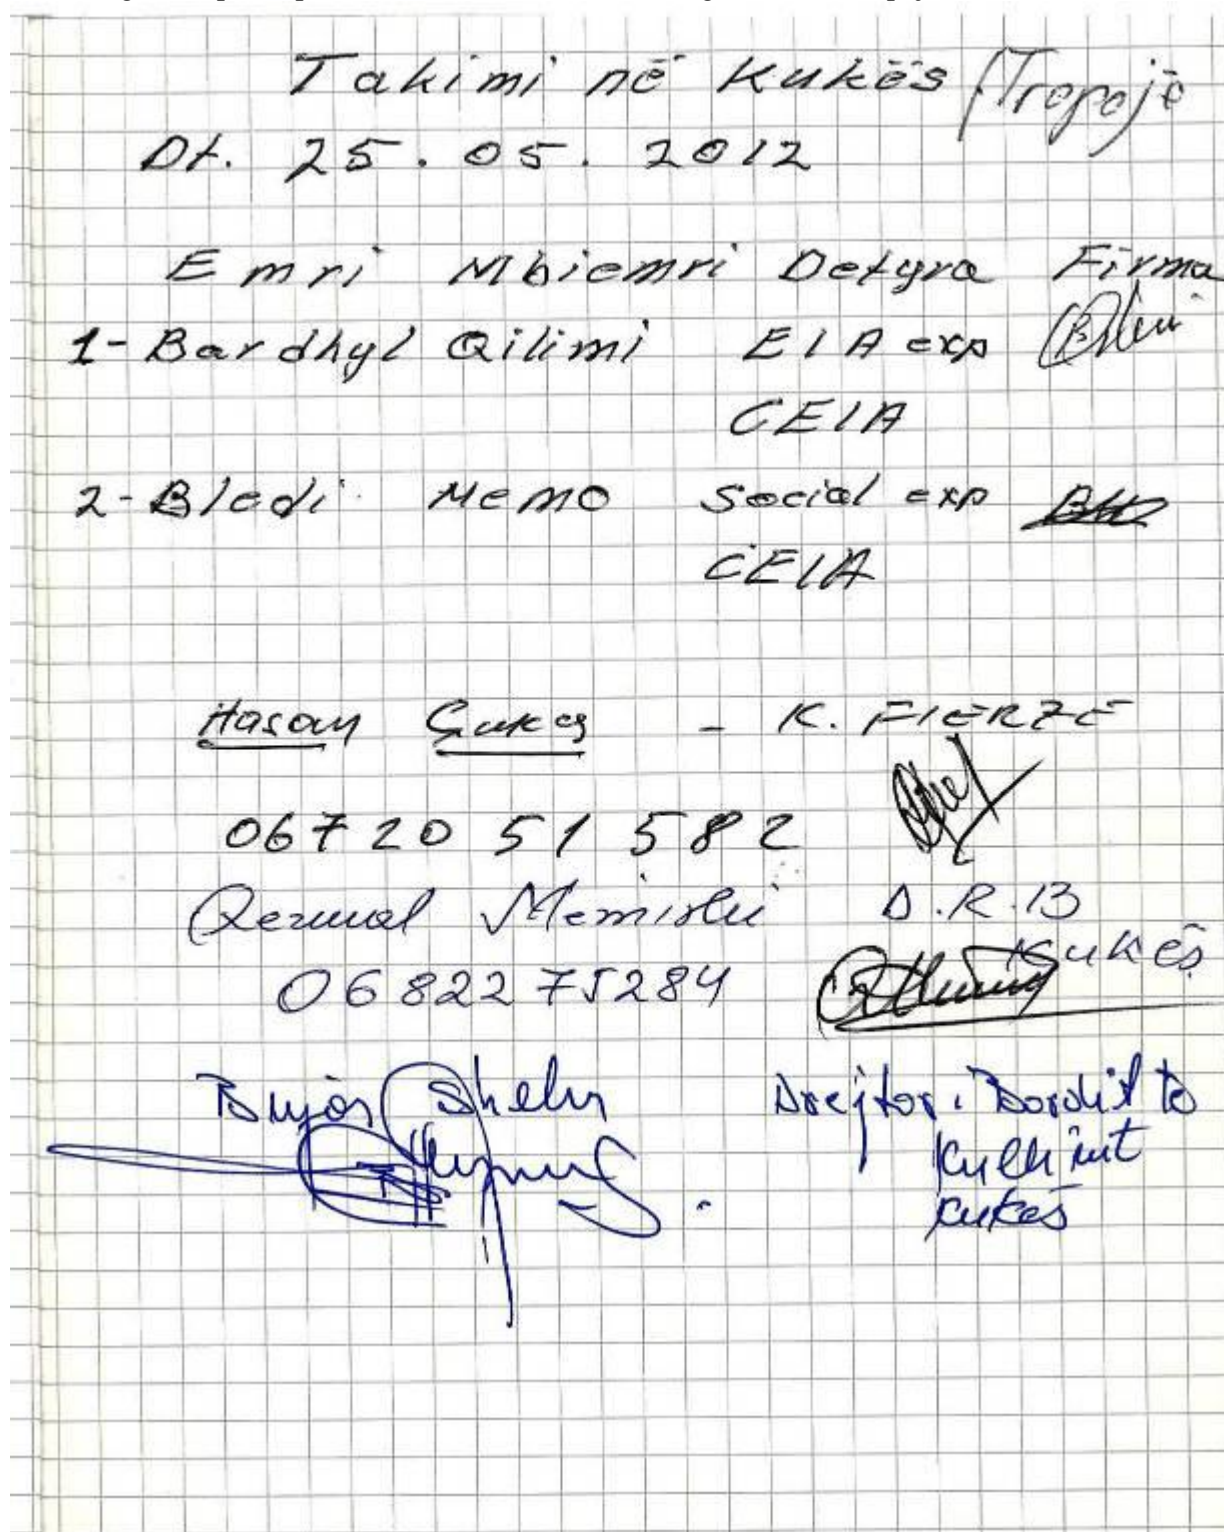 Takimi në Kukës / Tropojë
Dt. 25.05.2012
Emri Mbiemri Detyra Firma
1- Bardhyl Qilimi EIA exp
CEIA
2- Bledi Memo Social exp
CEIA
Hasan - K. FIERZE
067 20 51 582
Qezmal D.R.B
Kukës
06822 75284
Bujar Shehu Drejtor i Bordit të
Kullimit
Kukës